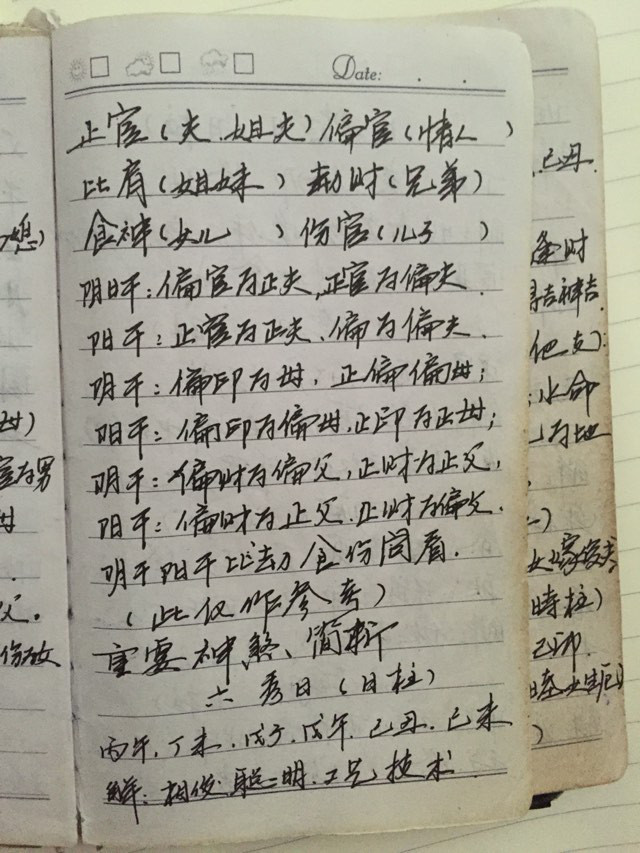 Date: . .
正官(夫.姐夫)偏官(情人 )
比肩(姐妹 )劫财(兄弟)
食神(女儿 )伤官(儿子 )
阴日干:偏官为正夫,正官为偏夫.
阳干:正官为正夫、偏为偏夫.
阴干:偏印为母,正偏偏母;
阳干:偏印为偏母.正印为正母;
阴干:偏财为偏父,正财为正父,
阳干:偏财为正父.正财为偏父.
阴干阳干比劫食伤同看.
(此仅作参考)
重要神煞、简断
六秀日(日柱)
丙午.丁未.戊子.戊午.己丑.己未
解:相俊聪明.工兄技术.
媳)
母)
官为男
母
父.
伤故
己丑.
逢时
(他支):
水命
为地
时柱)
己卯.